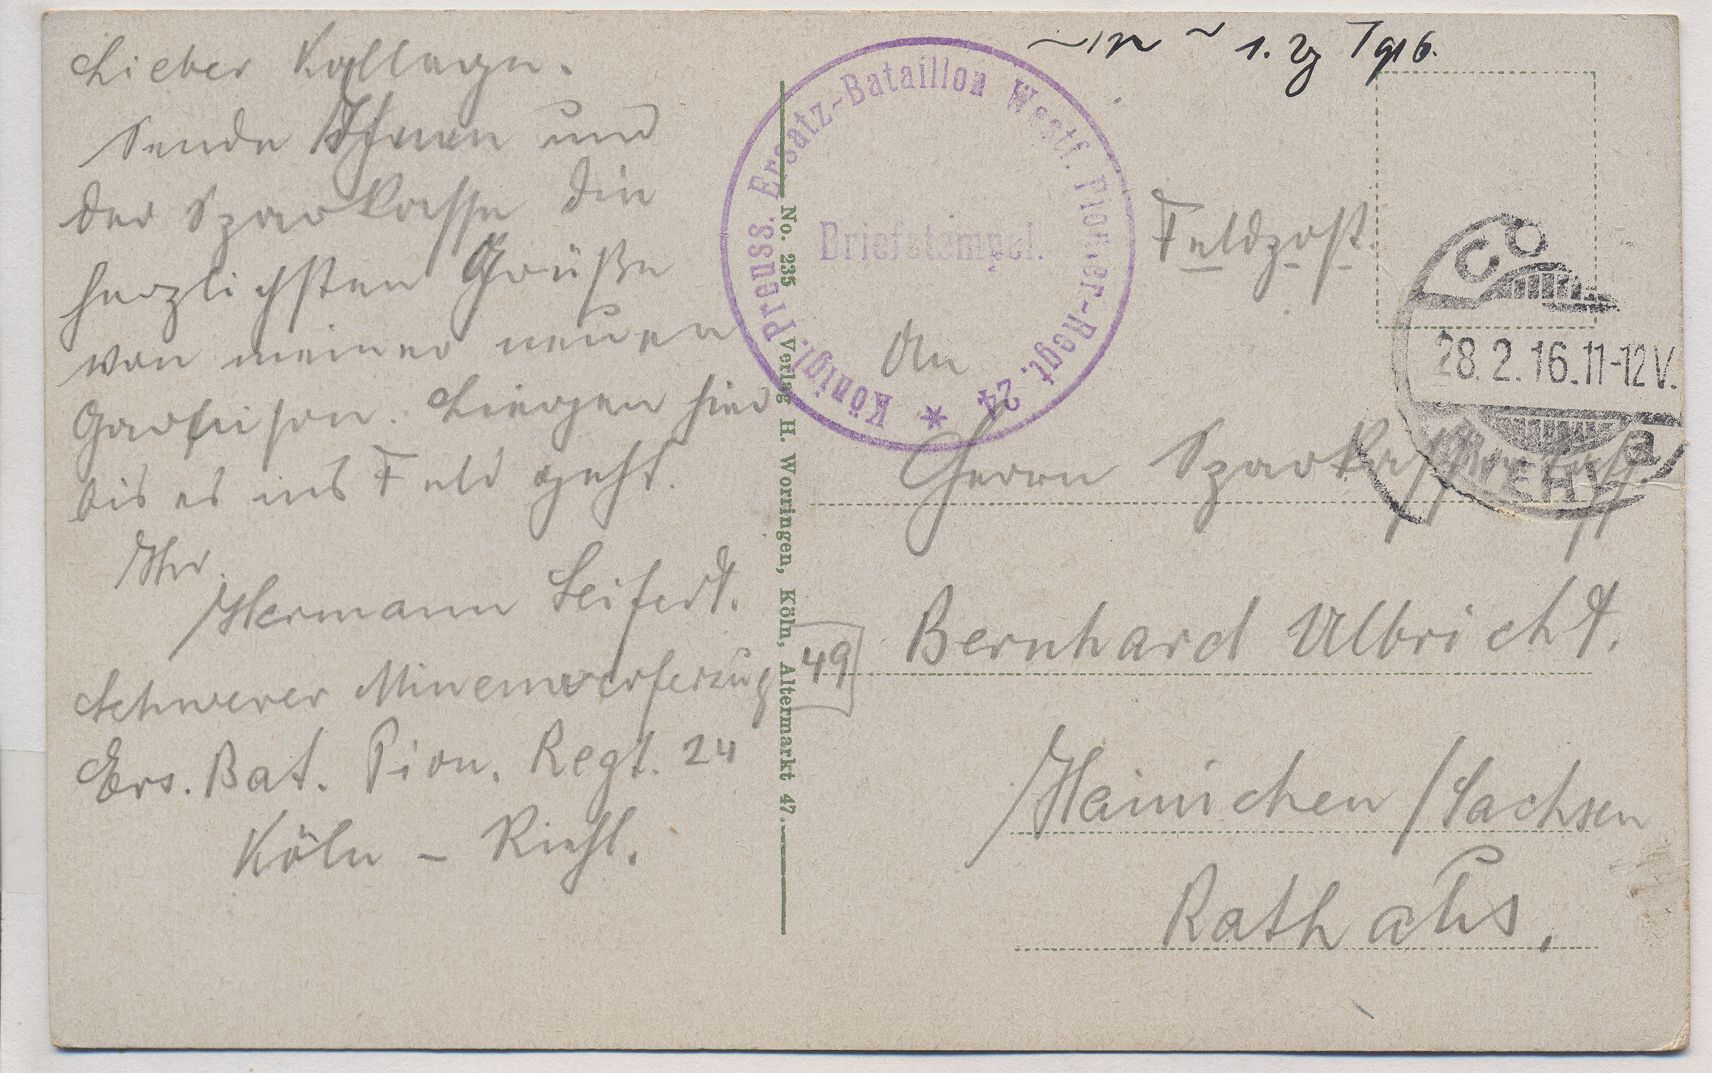 Lieber Kollege.
Sende Ihnen und
der Sparkasse die
herzlichsten Grüße
von meiner neuen
Garnison. Liegen hier
bis es ins Feld geht.
Ihr
Hermann Seifert.
Schwerer Minenwerferzug 49
Ers. Bat. Pion. Regt. 24
Köln - Riehl.
No. 235 Verlag H. Worringen, Köln, Altermarkt 47.
Königl. Preuss. Ersatz-Bataillon Westf. Pionier-Regt. 24
Briefstempel.
1916.
Feldpost.
CÖ
28.2.16.11-12V.
a
An
Herrn
Bernhard Ulbricht.
Hainichen / Sachsen
Rathaus.